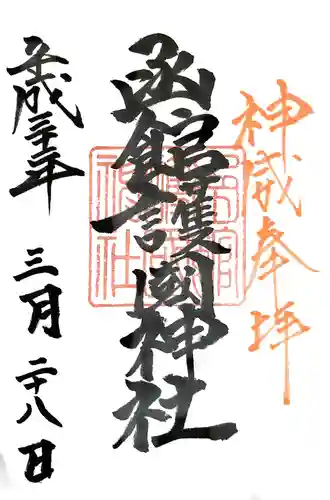 神威奉拝
函館護國神社
平成三十年
三月二十八日